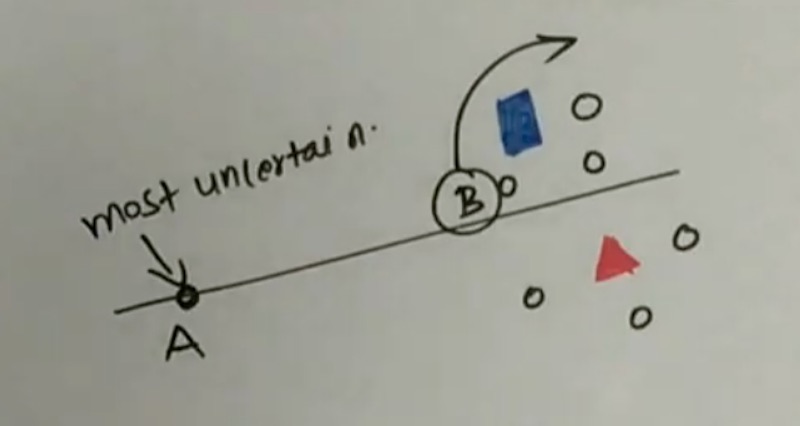 most uncertain.
B
A